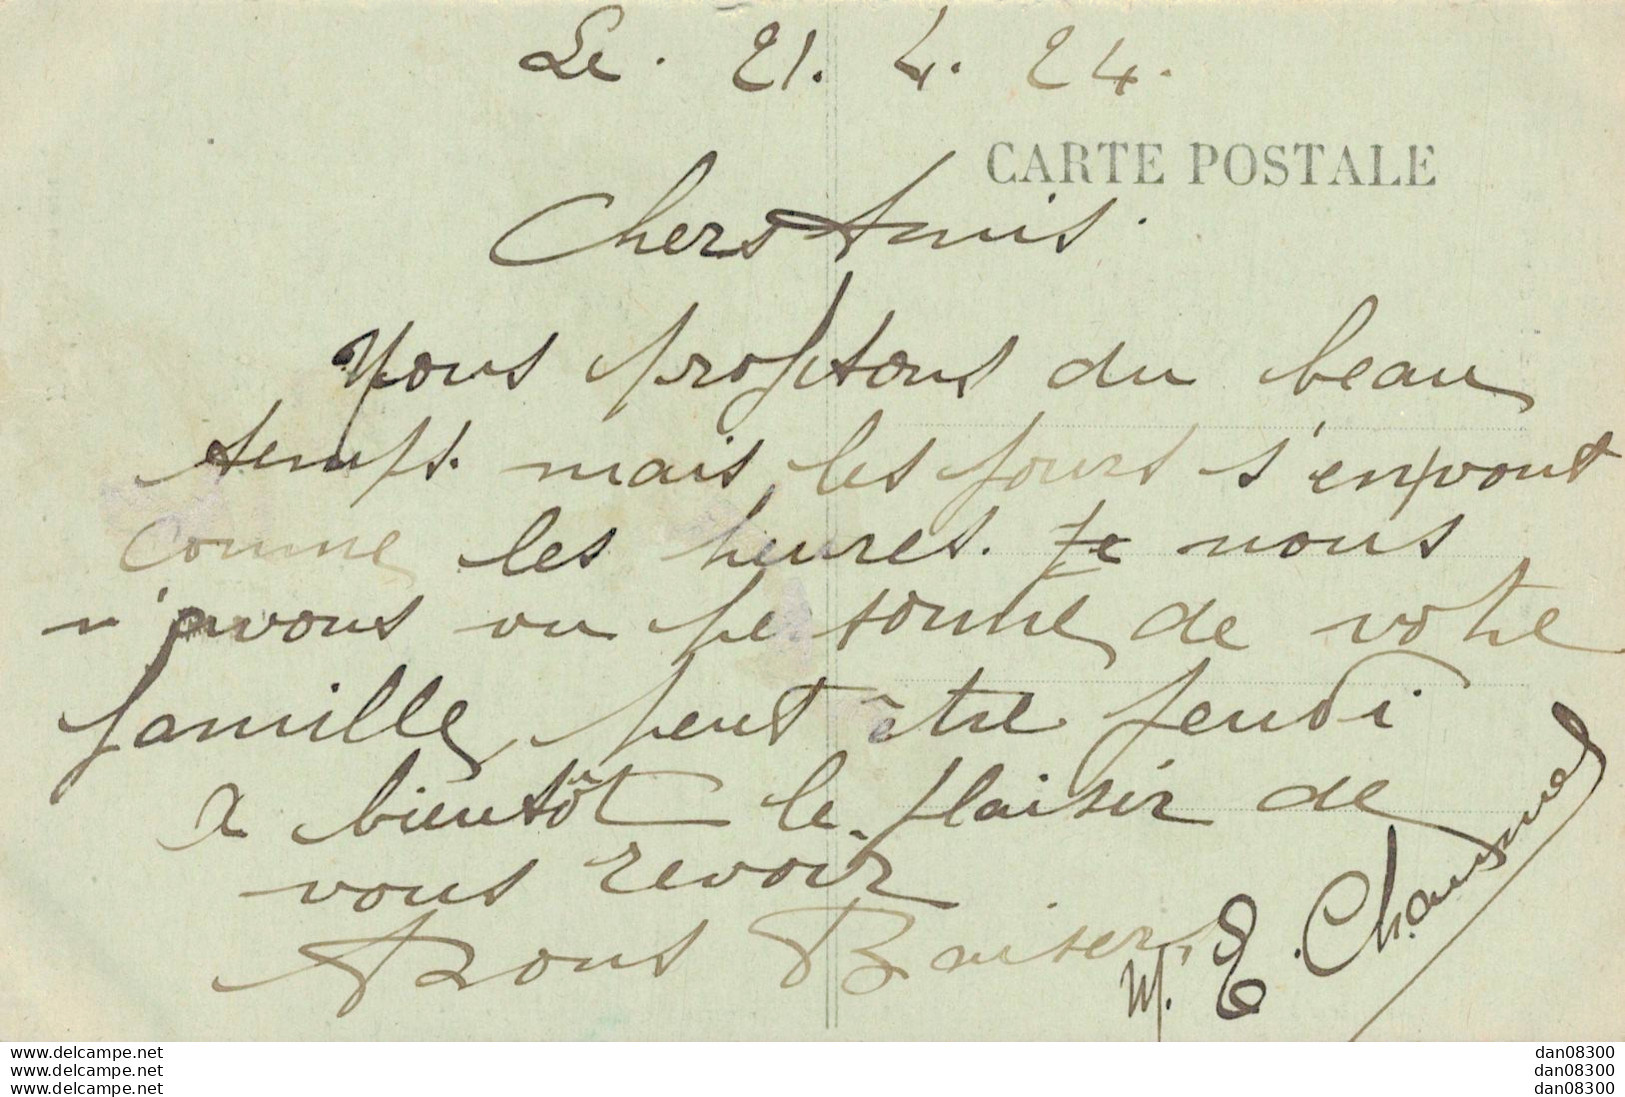 Le. 21. 4. 24.
CARTE POSTALE
Chers Amis.
Nous profitons du beau
temps. mais les jours s'en vont
comme les heures. Je nous
n'avons vu personne de votre
famille, peut être jeudi
a bientôt le plaisir de
vous revoir
Bons Baisers
M. E.
www.delcampe.net
www.delcampe.net
www.delcampe.net
dan08300
dan08300
dan08300